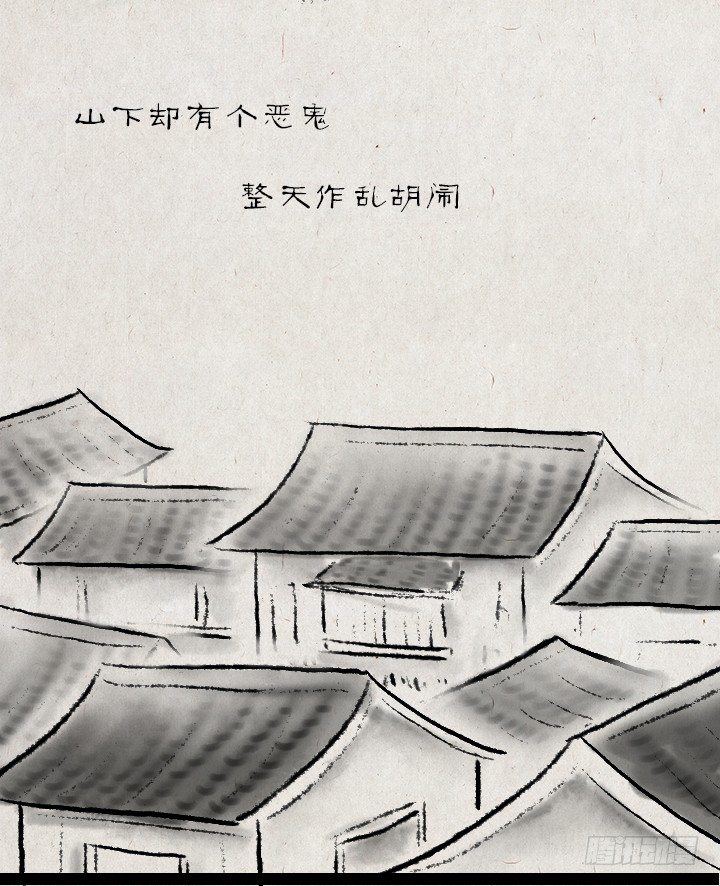 山下却有个恶鬼
整天作乱胡闹
腾讯动漫